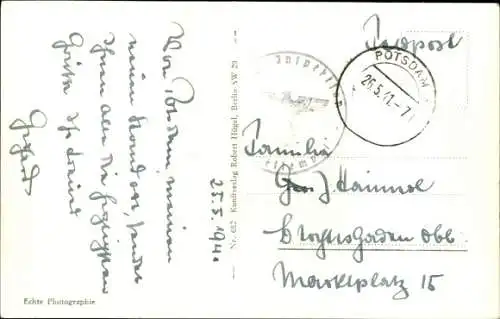 25.5.1941.
Von Potsdam, meinem
neuen Standort, sendet
Ihnen allen die herzlichsten
Grüße Ihr
Gerhard
Echte Photographie
Nr. 682 Kunstverlag Robert Hügel, Berlin SW 29
Feldpost
POTSDAM
26.5.41.-7
Familie
J. Hammel
Berchtesgaden Obb.
Marktplatz 15